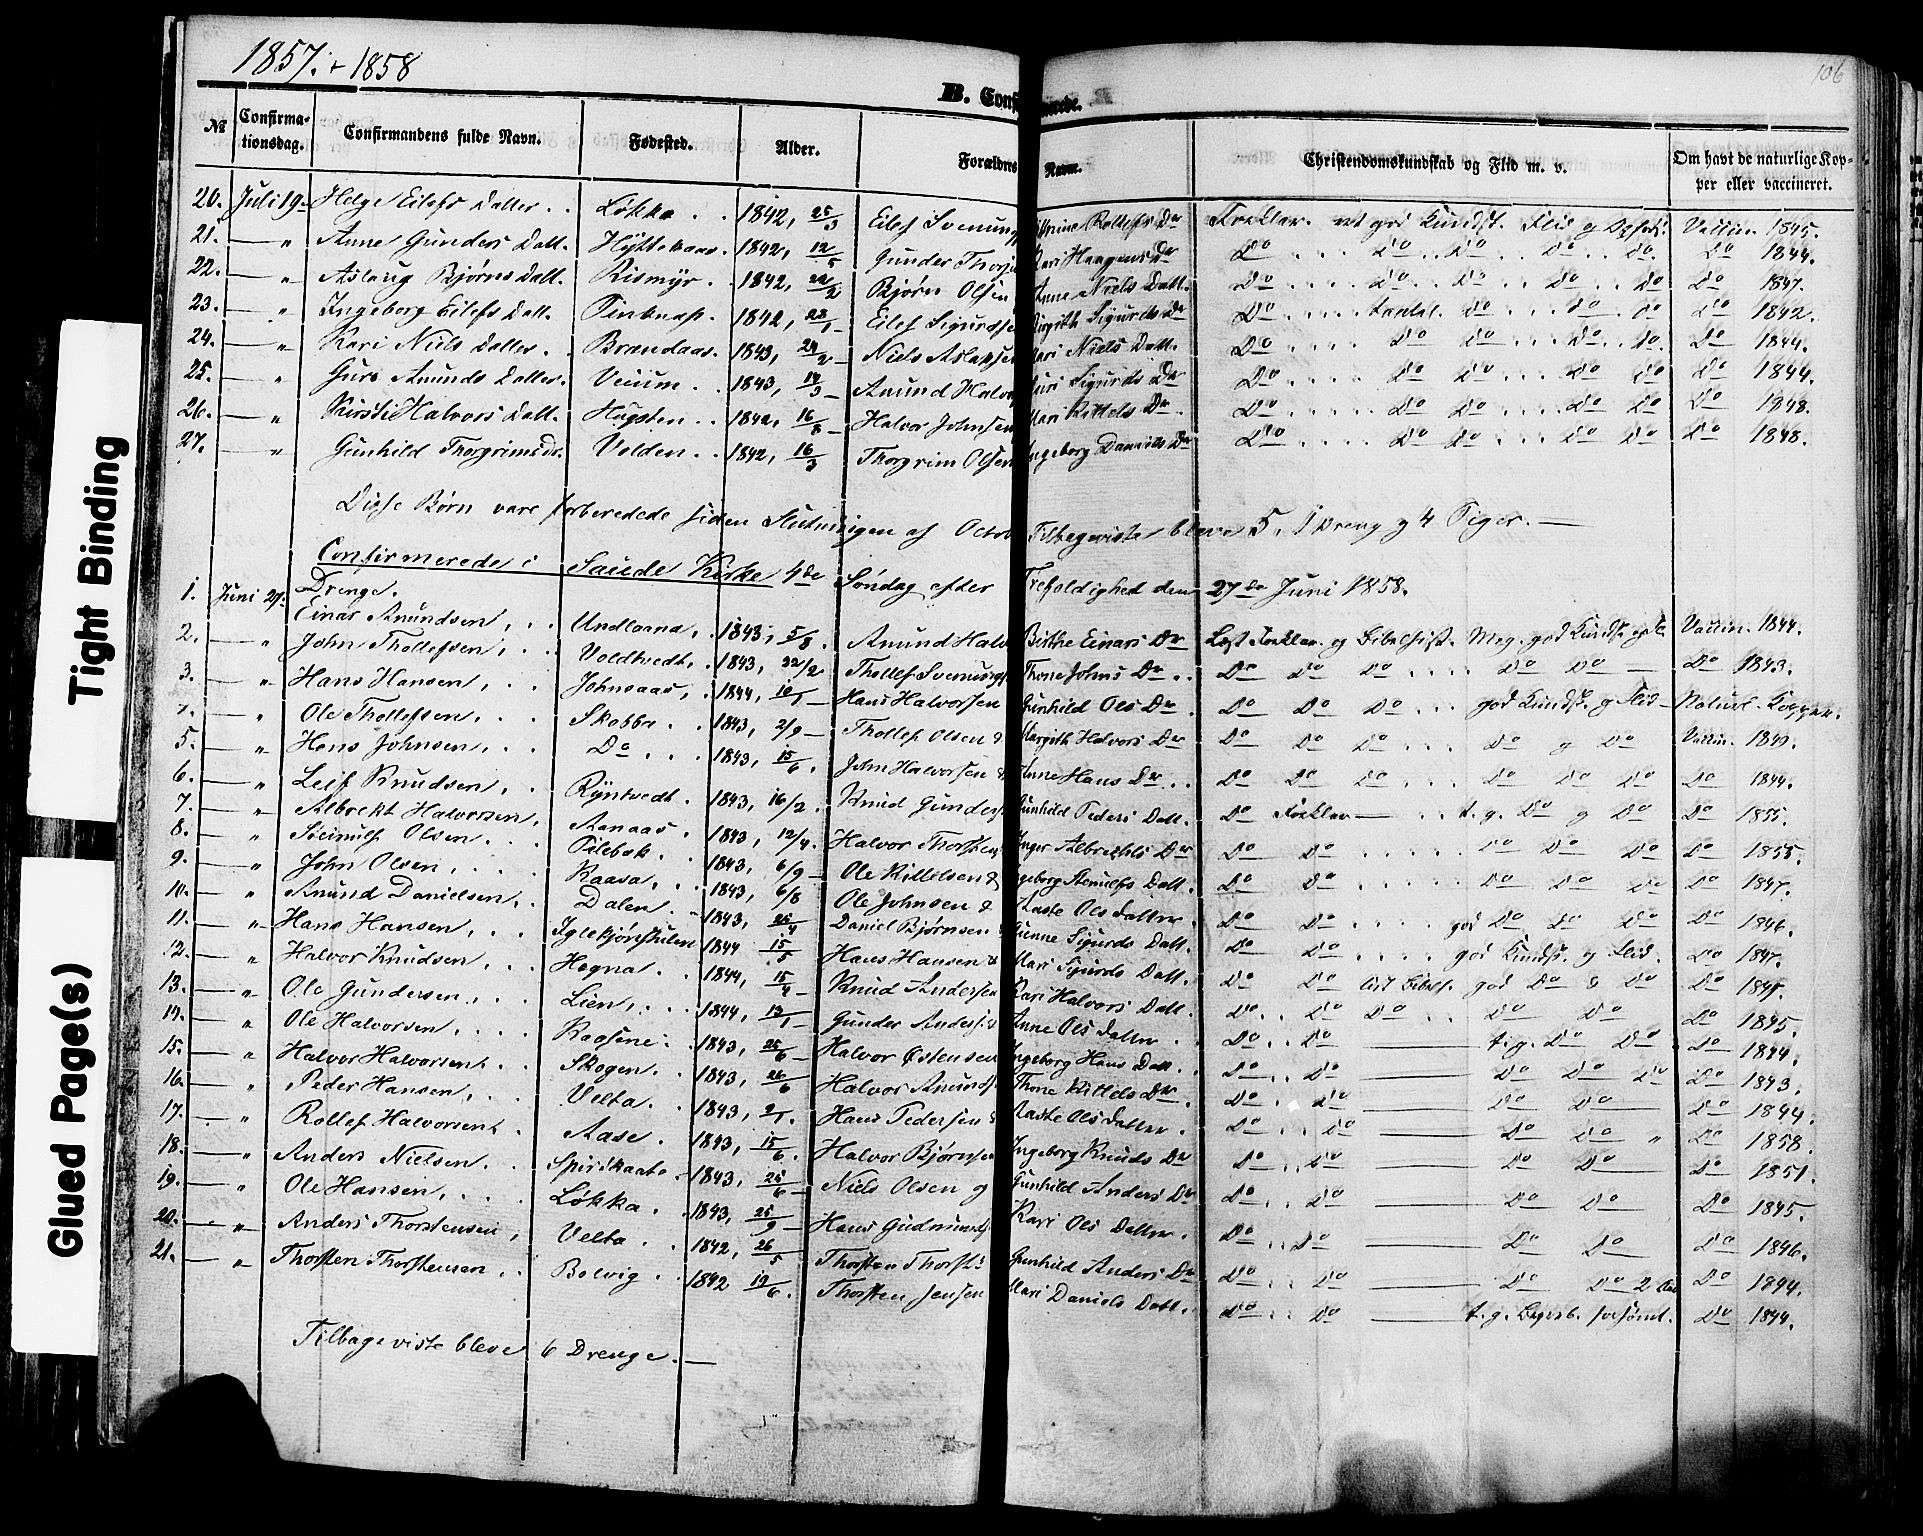 1857. + 1858
106
B. Conf
mande.
№ Confirma-tionsdag. Confirmandens fulde Navn. Fødested. Alder. Forældres Navne. Christendomskundskab og Flid m. v. Om havt de naturlige Kop-per eller vaccineret.
20. Juli 19. Helge Eilefs Datter . . Løkka . . 1842, 25/3 Eilef Svenung Rollefs Dr Forklar. god Kundsk. Flid og Vaccin. 1845.
21. — " Anne Gunders Datt. Hyttekaas . 1842, 12/5 Gunder Thorj Kari Haagens Dr Do . . . . Do . . Do . . Do . . Do. Do 1844.
22. — " Aslaug Bjørns Datt. Rismyr . 1842, 22/2 Bjørn Olsen Anne Niels Datt. Do . . . . Do . . Do . . . Do . . Do Do 1847.
23. — " Ingeborg Eilefs Datt. 1842, 23/1 Eilef Sigurdse Birgith Sigurds Dr Do . . . . Do . . . Do . . Do Do 1842.
24. — " Kari Niels Datter . Brændaas . 1843, 24/2 — Niels Aslaksen Kari Niels Datt. Do . . . . Do Do . . . Do . . Do. Do 1844.
25. — " Guro Anunds Datter . Veium . . 1843, 14/3 — Anund Halvor Guri Sigurds Dr Do . . . . Do Do . . . Do Do Do 1844.
26. — " Kirsti Halvors Datt. Høgsten . . 1842, 16/8 — Halvor Johnsen Mari Kittels Dr . Do . . . . . Do Do . . . Do Do Do 1848.
27. — " Gunhild Thorgrimsdr. Volden . . 1842, 16/3 Thorgrim Olsen Ingeborg Daniels Dr Do . . . . . Do Do . . . Do Do Do 1848.
Disse Børn vare forberedede siden Slutningen af Octob Tilbageviste bleve 5, 1 Dreng og 4 Piger. —
Confirmerede i Sauede Kirke 4de Søndag efter Trefoldighed den 27de Juni 1858.
Drenge.
1. Juni 27. Einar Anundsen, . . Undlaana, . 1843, 5/8 Anund Halv Birthe Einars Dr Læst Forklar. og Bibelhist. Meg. god Kundsk. Vaccin. 1844.
2. — " John Thollefsen, . . Voldtvedt, . 1843, 22/2 Thollef Svenungs Thone Johns Dr . . Do Do Do . . . . Do Do — Do 1843.
3. — " Hans Hansen, . . Johnsaas, . 1844, 10/1 — Hans Halvorsen Gunhild Ols Dr . Do Do Do . . . god Kundsk. og Flid — Naturl. Kopper.
4. — " Ole Thollefsen, . . Skobba . . 1843, 2/9 — Thollef Olsen & Margith Halvors Dr Do Do Do . . . . Do og Do Vaccin. 1840.
5. — " Hans Johnsen, . . Do . . . 1843, 15/6. John Halvorsen & Anne Hans Dr . . . Do Do Do . . . . Do Do Do Do 1844.
6. — " Leif Knudsen, . . . Ryntvedt . 1843, 16/2. Knud Gunders Gunhild Peders Datt. Do Forklar — . . t. g. Do og Do Do 1855.
7. — " Albrekt Halvorsen, Aanaas . 1843, 12/4. Halvor Thorsten Inger Albrechts Dr Do Do . . . . . Do Do Do Do 1855.
8. — " Steinulf Olsen . . . Pilebak . 1843, 6/9 — Ole Kittelsen & Ingeborg Stenulfs Datt. Do Do . . . . . . Do Do Do Do 1847.
9. — " John Olsen, . . . . Kaasa, . . 1843, 6/8 Ole Johnsen & Aaste Ols Datter . Do Do . . . . god Do Do Do Do 1846.
10. — " Anund Danielsen, . . Dalen . . 1843, 25/4 Daniel Bjørnsen Gunne Sigurds Datt. Do Do . . . . god Kundsk. og Flid . Do 1847.
11. — " Hans Hansen, . . . Iglekjønhulen 1844 15/5 Hans Hansen & Mari Sigurds Datt. Do Do Bibelh. god Do & Do Do
12. — " Halvor Knudsen, . . Hogna . . 1844, 15/4 Knud Andersen Kari Halvors Datt. Do . . Do Do . . Do Do Do 1845.
13. — " Ole Gundersen . . . Lien, . . . 1844, 13/1 Gunder Anders. & Anne Ols Datter . . Do . . Do — t. g. Do Do Do 1844.
14. — " Ole Halvorsen, . . . . Kaasene . 1843, 25/6 — Halvor Østensen Ingeborg Hans Datt. . Do . . Do — Do Do Do Do 1843.
15. — " Halvor Halvorsen . . Skogen . . 1843, 26/6 Halvor Anunds Thone Kittels Dr . Do . . Do — Do Do Do 1844.
16. — " Peder Hansen, . . . Velta . . 1843, 2/1. Hans Pedersen & Aaste Ols Datter . Do . . Do — Do Do " Do 1858.
17. — " Rollef Halvorsen . Aase . 1843, 15/6. Halvor Bjørnsen Ingeborg Knuds Dr Do . . Do — Do Do Do 1851.
18. — " Anders Nielsen . . Spirekaate . 1843, 25/6 — Niels Olsen og Gunhild Anders Dr Do . . Do — Do Do Do 1845.
19. — " Ole Hansen, . . . . Løkka . 1843, 25/9 — Hans Gudmunds Kari Ols Datter . Do . . Do — Do Do Do 1846.
20. — " Anders Thorstensen, Velta . . 1842, 26/5 Thorsten Thorst Gunhild Anders Dr Do . . Do — Do Do Do 1844.
21. — " Thorsten Thorstensen, . . Bolvig . . 1842 19/6. Thorsten Jensen Mari Daniels Datt. Do . . Do — t. g. forsømt. Do 1844.
Tilbageviste bleve 6 Drenge. —
Tight Binding
Glued Page(s)